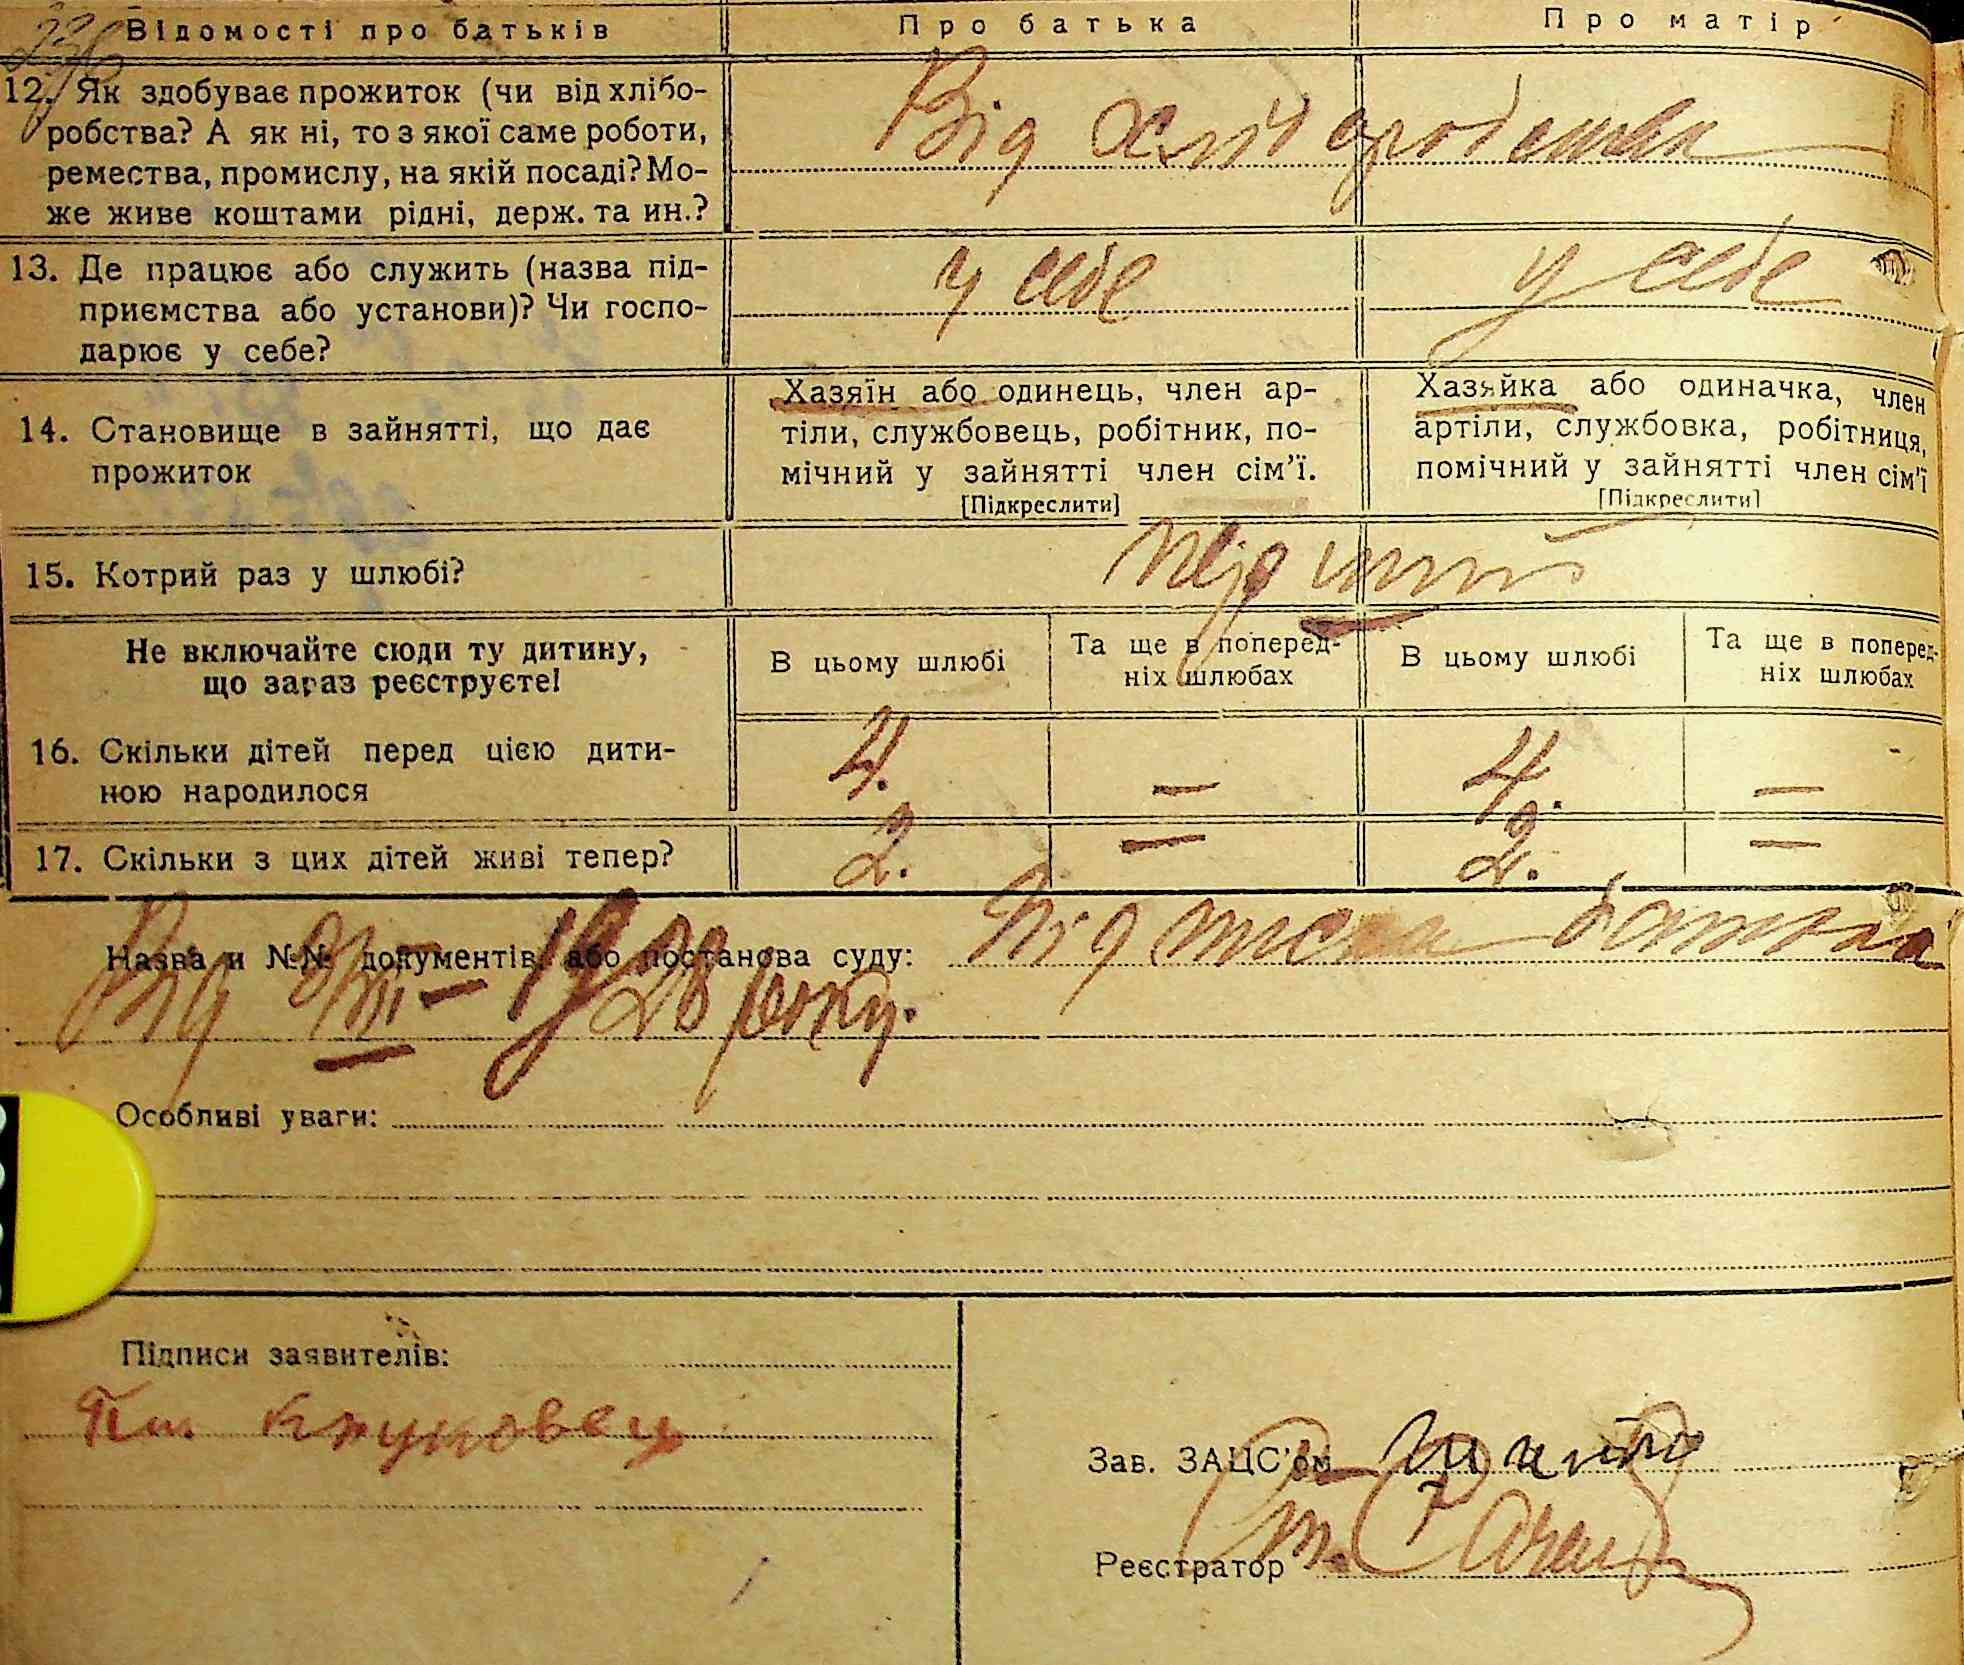 Відомості про батьків
Про батька
Про матір
12. Як здобуває прожиток (чи від хлібо-
робства? А як ні, то з якої саме роботи,
ремества, промислу, на якій посаді? Мо-
же живе коштами рідні, держ. та ин.?
Від хліборобства
13. Де працює або служить (назва під-
приємства або установи)? Чи госпо-
дарює у себе?
у себе
у себе
14. Становище в зайнятті, що дає
прожиток
Хазяїн або одинець, член ар-
тіли, службовець, робітник, по-
мічний у зайнятті член сім'ї.
[Підкреслити]
Хазяйка або одиначка, член
артіли, службовка, робітниця,
помічний у зайнятті член сім'ї
[Підкреслити]
15. Котрий раз у шлюбі?
перший
Не включайте сюди ту дитину,
що зараз реєструєте!
В цьому шлюбі
Та ще в поперед-
ніх шлюбах
В цьому шлюбі
Та ще в поперед-
ніх шлюбах
16. Скільки дітей перед цією дити-
ною народилося
4. — 4. —
17. Скільки з цих дітей живі тепер?
2. — 2. —
Назва и №№ документів або постанова суду: Підписка батька
Від 8/VIII - 1928 року.
Особливі уваги:
Підписи заявителів:
Зав. ЗАЦС'ом
Реєстратор